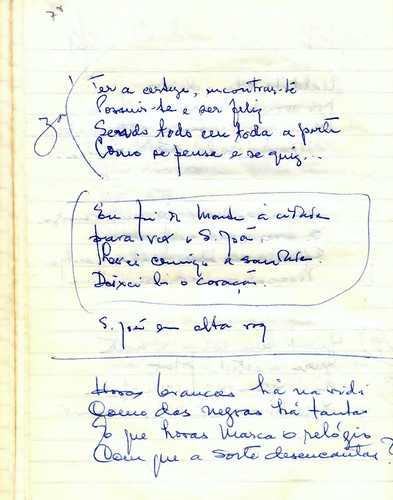 7º
Ter a certeza, encontrar-te
Possuir-te e ser feliz
Sendo todo em toda a parte
Como se pensa e se quiz...
Eu fui à cidade
para ver o S. João.
comigo a saudade.
Deixei lá o coração.
S. João em alta voz
Horas brancas há na vida
Quemo das negras há tantas
que horas marca o relógio
Com que a sorte desencantas?